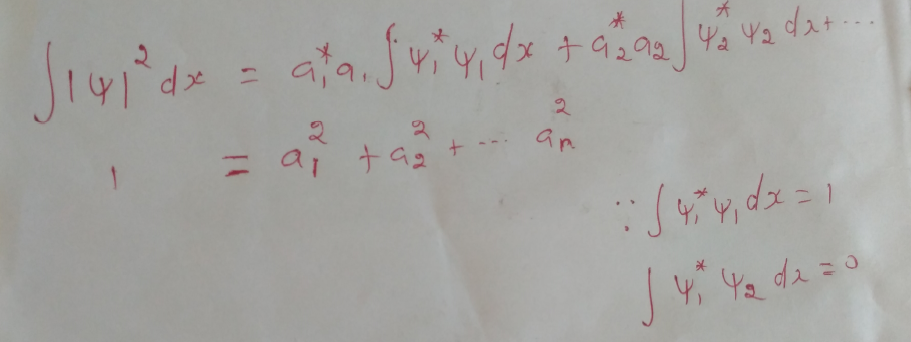 ∫|ψ|² dx = a₁*a₁ ∫ψ₁*ψ₁ dx + a₂*a₂ ∫ψ₂*ψ₂ dx + ...
1 = a₁² + a₂² + ... aₙ²
∵ ∫ψ₁*ψ₁ dx = 1
∫ψ₁*ψ₂ dx = 0